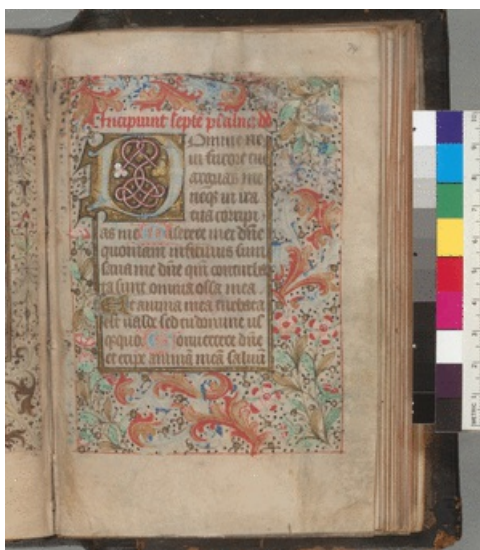 Incipiunt septē psalmi
Domine ne
in furore tu
arguas me
neqꝫ in ira
tua corripi
as me Miserere mei dn̄e
quoniam infirmus sum
sana me dn̄e qm̄ conturba
ta sunt omnia ossa mea
Et anima mea turbata
est ualde sed tu domine us
qꝫquo Conuertere dn̄e
et eripe animā meā saluū